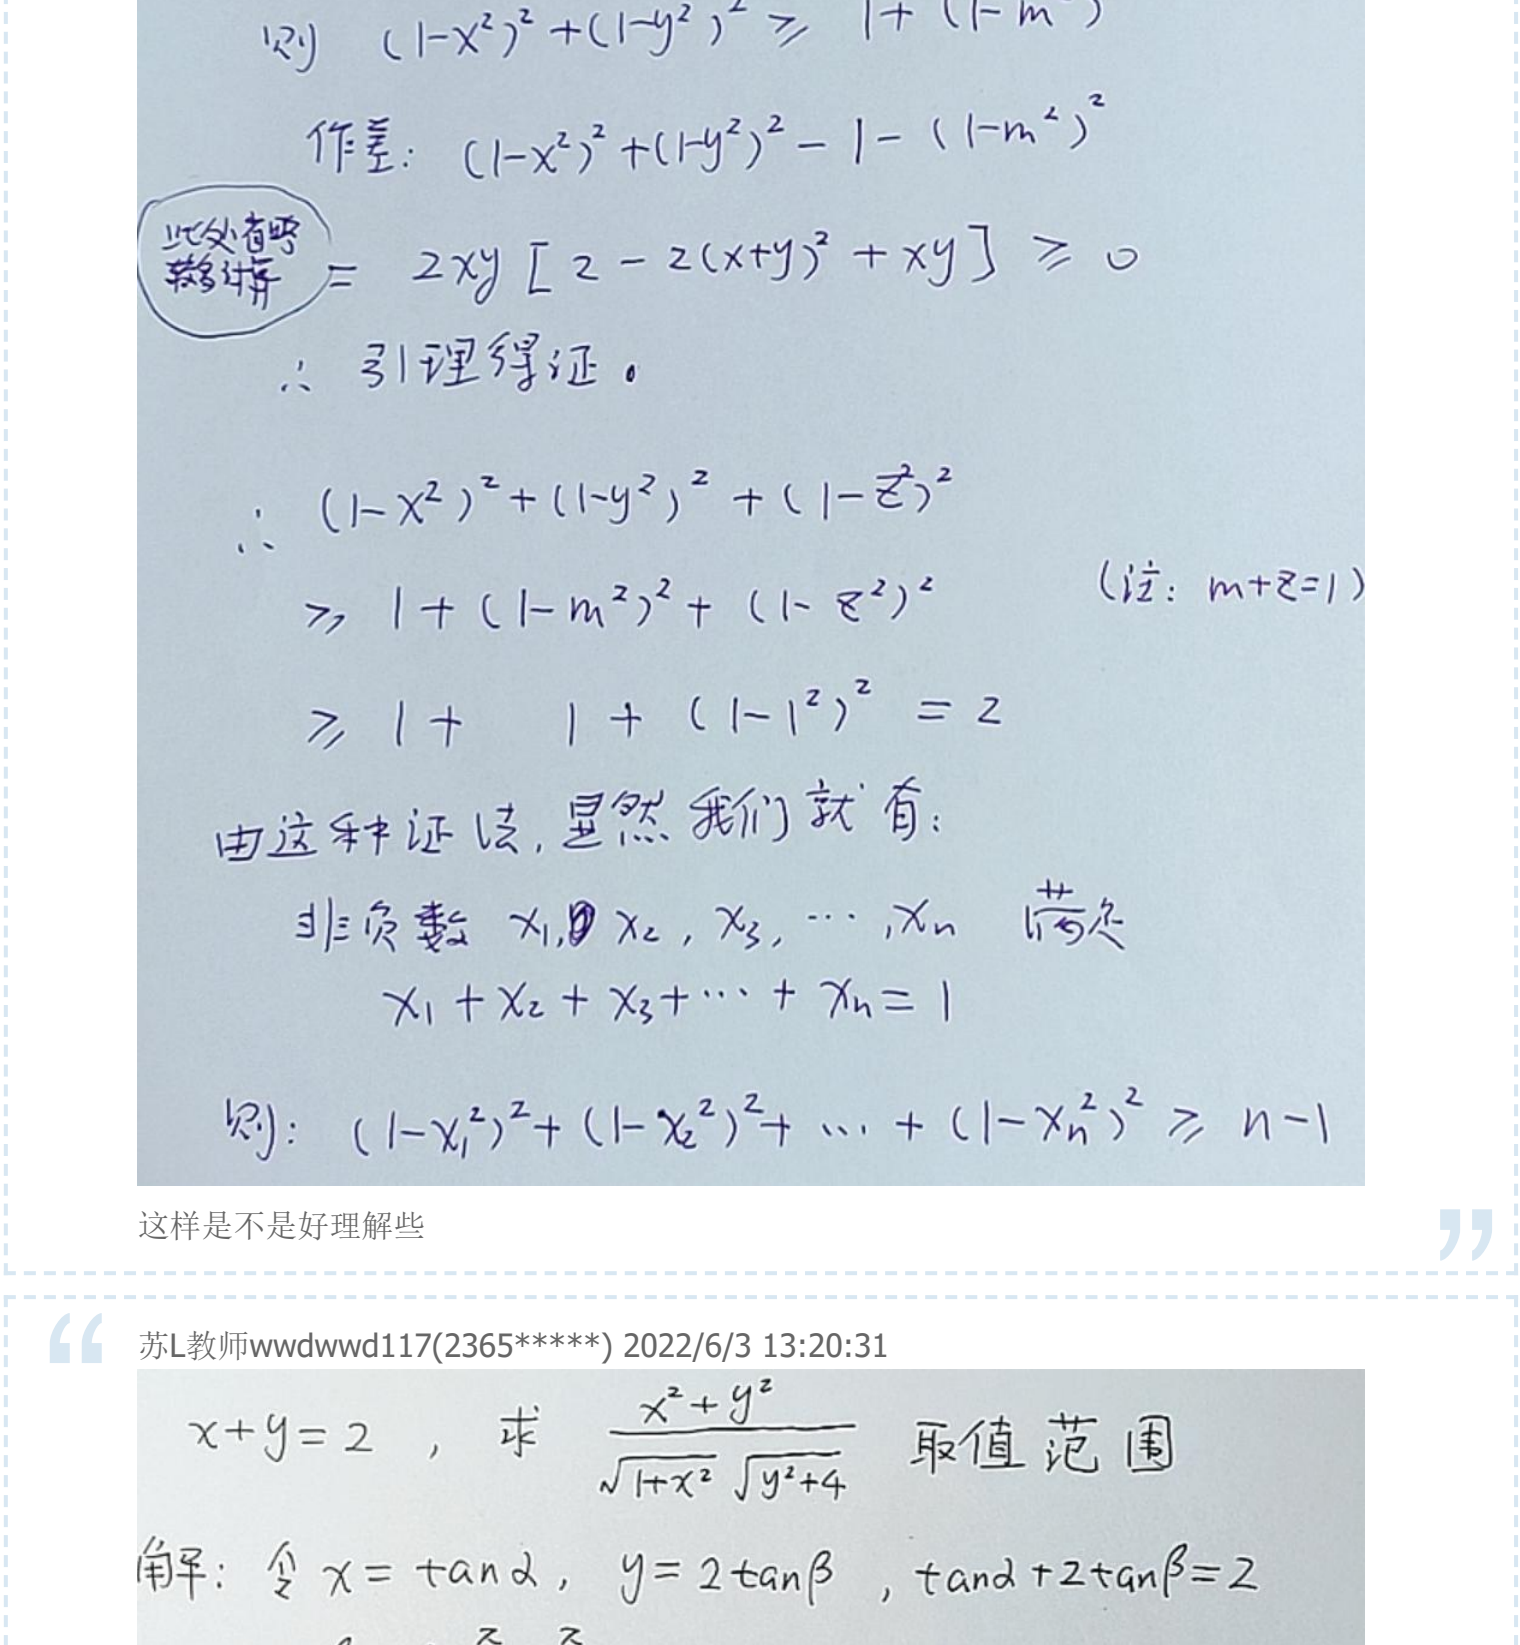 则 (1-x²)²+(1-y²)² ≥ 1+(1-m²)
作差: (1-x²)²+(1-y²)²-1-(1-m²)²
此处省略
较多计算
= 2xy[2-2(x+y)²+xy] ≥ 0
∴ 引理得证。
∴ (1-x²)²+(1-y²)²+(1-z²)²
≥ 1+(1-m²)²+(1-z²)² (注: m+z=1)
≥ 1+ 1+(1-1²)² = 2
由这种证法, 显然我们就有:
非负数 x₁, x₂, x₃, …, xₙ 满足
x₁+x₂+x₃+…+xₙ=1
则: (1-x₁²)²+(1-x₂²)²+…+(1-xₙ²)² ≥ n-1
这样是不是好理解些
苏L教师wwdwwd117(2365*****) 2022/6/3 13:20:31
x+y=2 , 求 (x²+y²)/(√(1+x²) √(y²+4)) 取值范围
解: 令 x=tanα, y=2tanβ , tanα+2tanβ=2